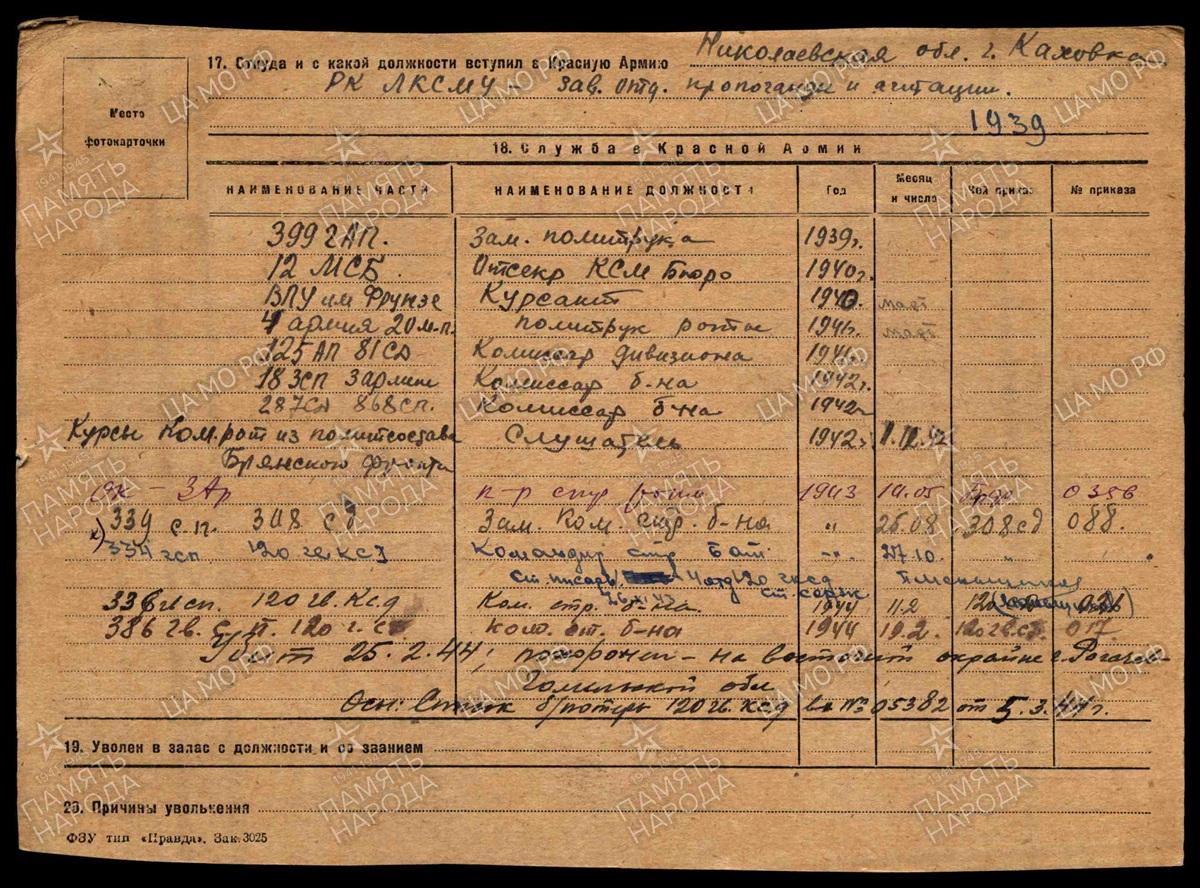 Николаевская обл. г. Каховка
17. Откуда и с какой должности вступил в Красную Армию
РК ЛКСМУ – зав. отд. пропоганды и агитации.
1939
Место
фотокарточки
18. Служба в Красной Армии
НАИМЕНОВАНИЕ ЧАСТИ НАИМЕНОВАНИЕ ДОЛЖНОСТИ Год Месяц и число Чей приказ № приказа
399 ГАП. Зам. политрука 1939г.
12 МСБ. Отсекр КСМ Бюро 1940г.
ВПУ им Фрунзе Курсант 1940.
4 армия 20 м.п. политрук роты 1941г.
125 АП 81 СД Комиссар дивизиона 1941г.
18 ЗСП 3 армии Комиссар б-на 1942г.
287 СД 868 СП. Комиссар б-на 1942г
Курсы Ком.рот из политсостава Слушатель 1942г
Брянского фронта
ОК – 3 Ар 1943 19.05 0356
339 с.п. 308 с.д. Зам. Ком. стр. б-на " 25.08 308 сд 088.
х) 334 гсп 120 гв. КСД Командир стр бат. " 27.10. "
ст. писарь 4 отд 120 гксд
26 ст. серж
336 гв сп. 120 гв. Ксд Ком. стр. б-на 1944 11.2
386 гв. с.п. 120 г. сд Ком. ст. б-на 1944 19.2. 120 гв. сд 017.
Убит 25.2.44; похоронен – на восточн окраине г. Рогачев
Гомельской обл
Осн: Список б/потерь 120 гв. ксд вх № 05382 от 5.3.44 г.
19. Уволен в запас с должности и со званием
20. Причины увольнения
ФЗУ тип «Правда». Зак. 3025
ПАМЯТЬ НАРОДА
1941-1945
ЦА МО РФ